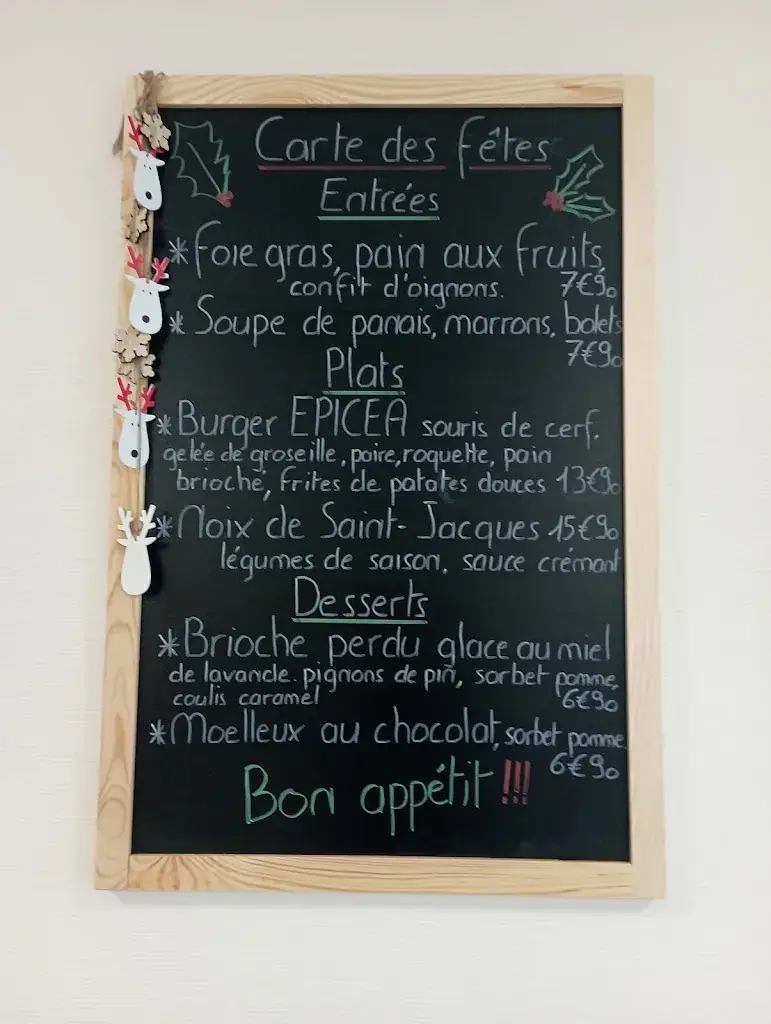 Carte des fêtes
Entrées
*Foie gras, pain aux fruits,
confit d'oignons. 7€90
* Soupe de panais, marrons, bolets
7€90
Plats
*Burger EPICEA souris de cerf,
gelée de groseille, poire, roquette, pain
brioché, frites de patates douces 13€90
*Noix de Saint-Jacques 15€90
légumes de saison, sauce crémant
Desserts
*Brioche perdu glace au miel
de lavande. pignons de pin, sorbet pomme,
coulis caramel 6€90
*Moelleux au chocolat, sorbet pomme
6€90
Bon appétit !!!